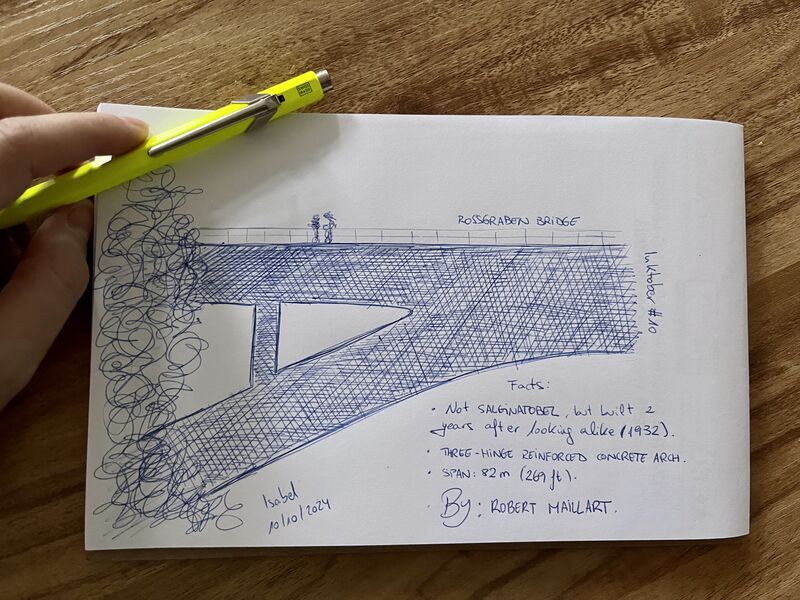 ROSSGRABEN BRIDGE
Inktober #10
Facts:
• Not SALGINATOBEL, but built 2
years after looking alike (1932).
• THREE-HINGE REINFORCED CONCRETE ARCH.
• SPAN: 82m (269 ft).
By: ROBERT MAILLART.
Isabel
10/10/2024